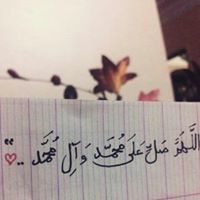 اللَّهُمَّ صَلِّ عَلَى مُحَمَّد وَآلِ مُحَمَّد ..